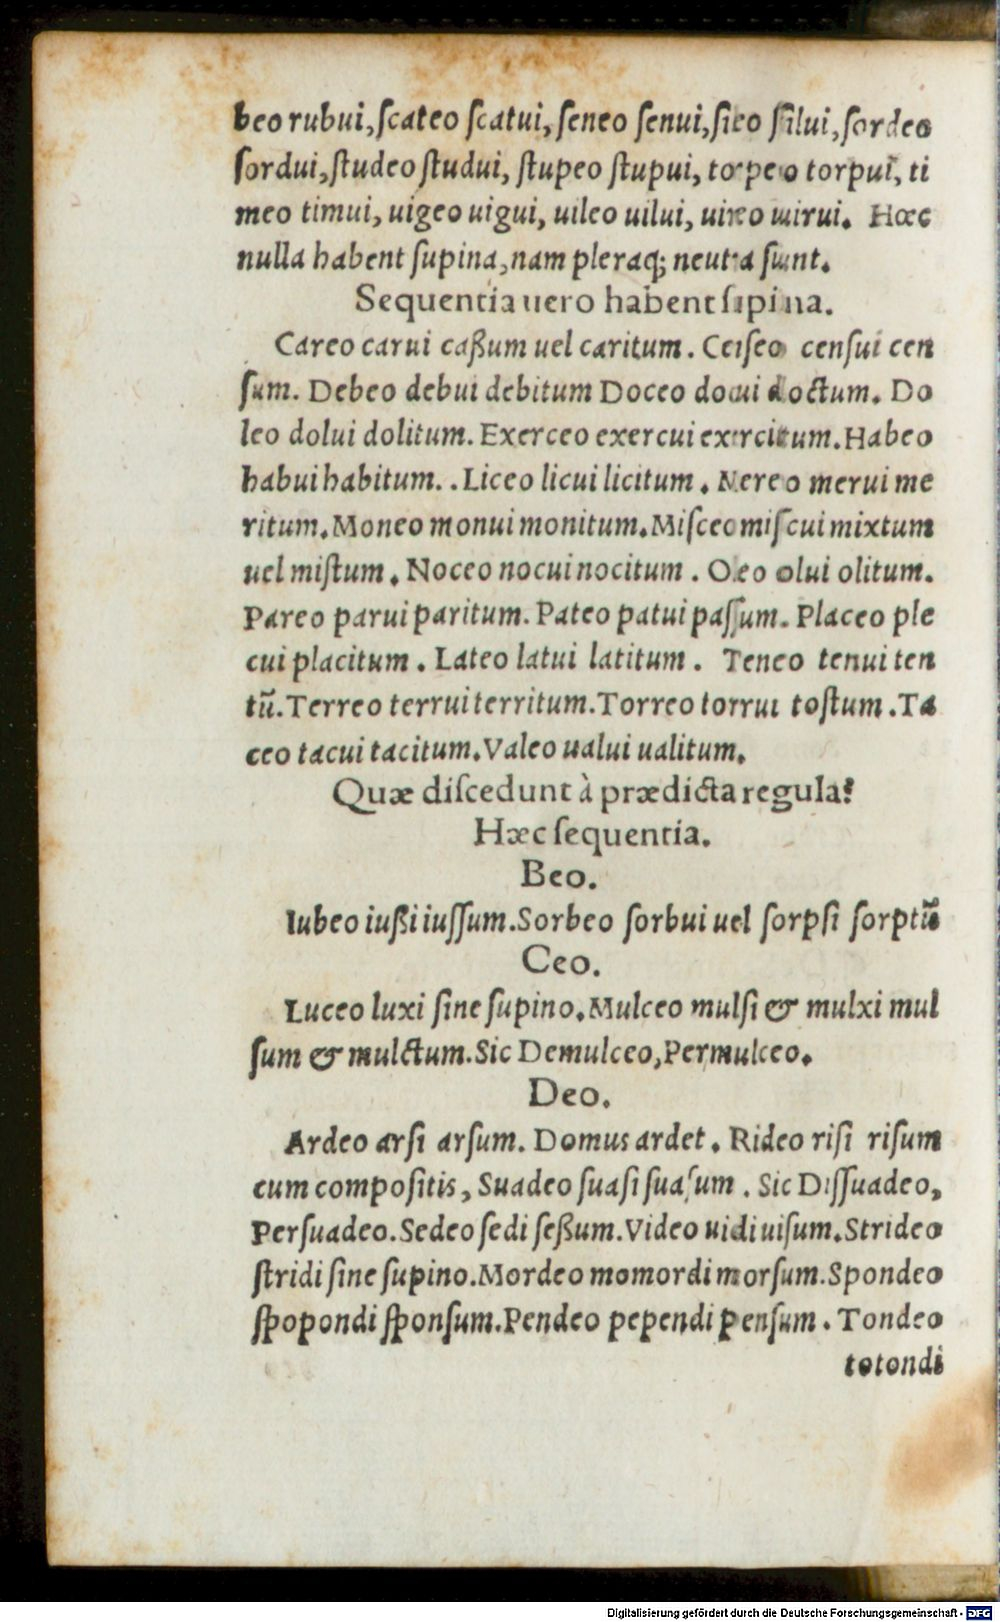 beo rubui, ſcateo ſcatui, ſeneo ſenui, ſileo ſilui, ſordeo
ſordui, ſtudeo ſtudui, ſtupeo ſtupui, torpeo torpui, ti
meo timui, uigeo uigui, uileo uilui, uireo uirui. Hæc
nulla habent ſupina, nam pleraq; neutra ſunt.
Sequentia uero habent ſupina.
Careo carui caßum uel caritum. Cenſeo cenſui cen
ſum. Debeo debui debitum Doceo docui doctum. Do
leo dolui dolitum. Exerceo exercui exercitum. Habeo
habui habitum. . Liceo licui licitum. Mereo merui me
ritum. Moneo monui monitum. Miſceo miſcui mixtum
uel miſtum. Noceo nocui nocitum. Oleo olui olitum.
Pareo parui paritum. Pateo patui paſſum. Placeo ple
cui placitum. Lateo latui latitum. Teneo tenui ten
tū. Terreo terrui territum. Torreo torrui toſtum. Ta
ceo tacui tacitum. Valeo ualui ualitum.
Quæ diſcedunt à prædicta regula?
Hæc ſequentia.
Beo.
Iubeo iußi iuſſum. Sorbeo ſorbui uel ſorpſi ſorptū
Ceo.
Luceo luxi ſine ſupino. Mulceo mulſi & mulxi mul
ſum & mulctum. Sic Demulceo, Permulceo.
Deo.
Ardeo arſi arſum. Domus ardet. Rideo riſi riſum
cum compoſitis, Suadeo ſuaſi ſuaſum. Sic Diſſuadeo,
Perſuadeo. Sedeo ſedi ſeßum. Video uidi uiſum. Strideo
ſtridi ſine ſupino. Mordeo momordi morſum. Spondeo
ſpopondi ſponſum. Pendeo pependi penſum. Tondeo
totondi
Digitalisierung gefördert durch die Deutsche Forschungsgemeinschaft - DFG